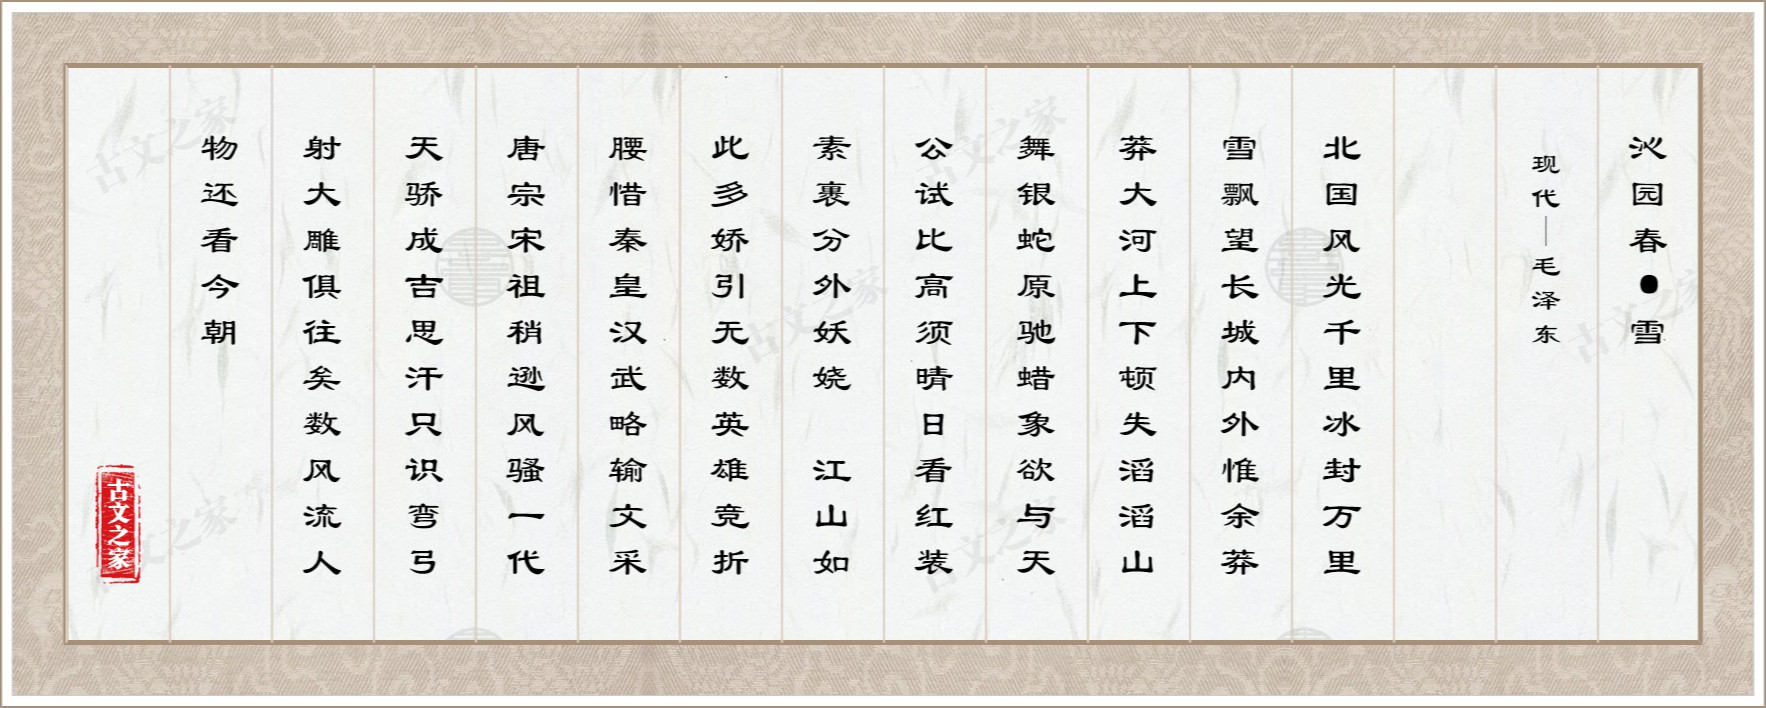 沁园春●雪
现代—毛泽东
北国风光千里冰封万里
雪飘望长城内外惟余莽
莽大河上下顿失滔滔山
舞银蛇原驰蜡象欲与天
公试比高须晴日看红装
素裹分外妖娆 江山如
此多娇引无数英雄竞折
腰惜秦皇汉武略输文采
唐宗宋祖稍逊风骚一代
天骄成吉思汗只识弯弓
射大雕俱往矣数风流人
物还看今朝
古文之家
古文之家
古文之家
古文之家
古文之家
古文之家
古文之家